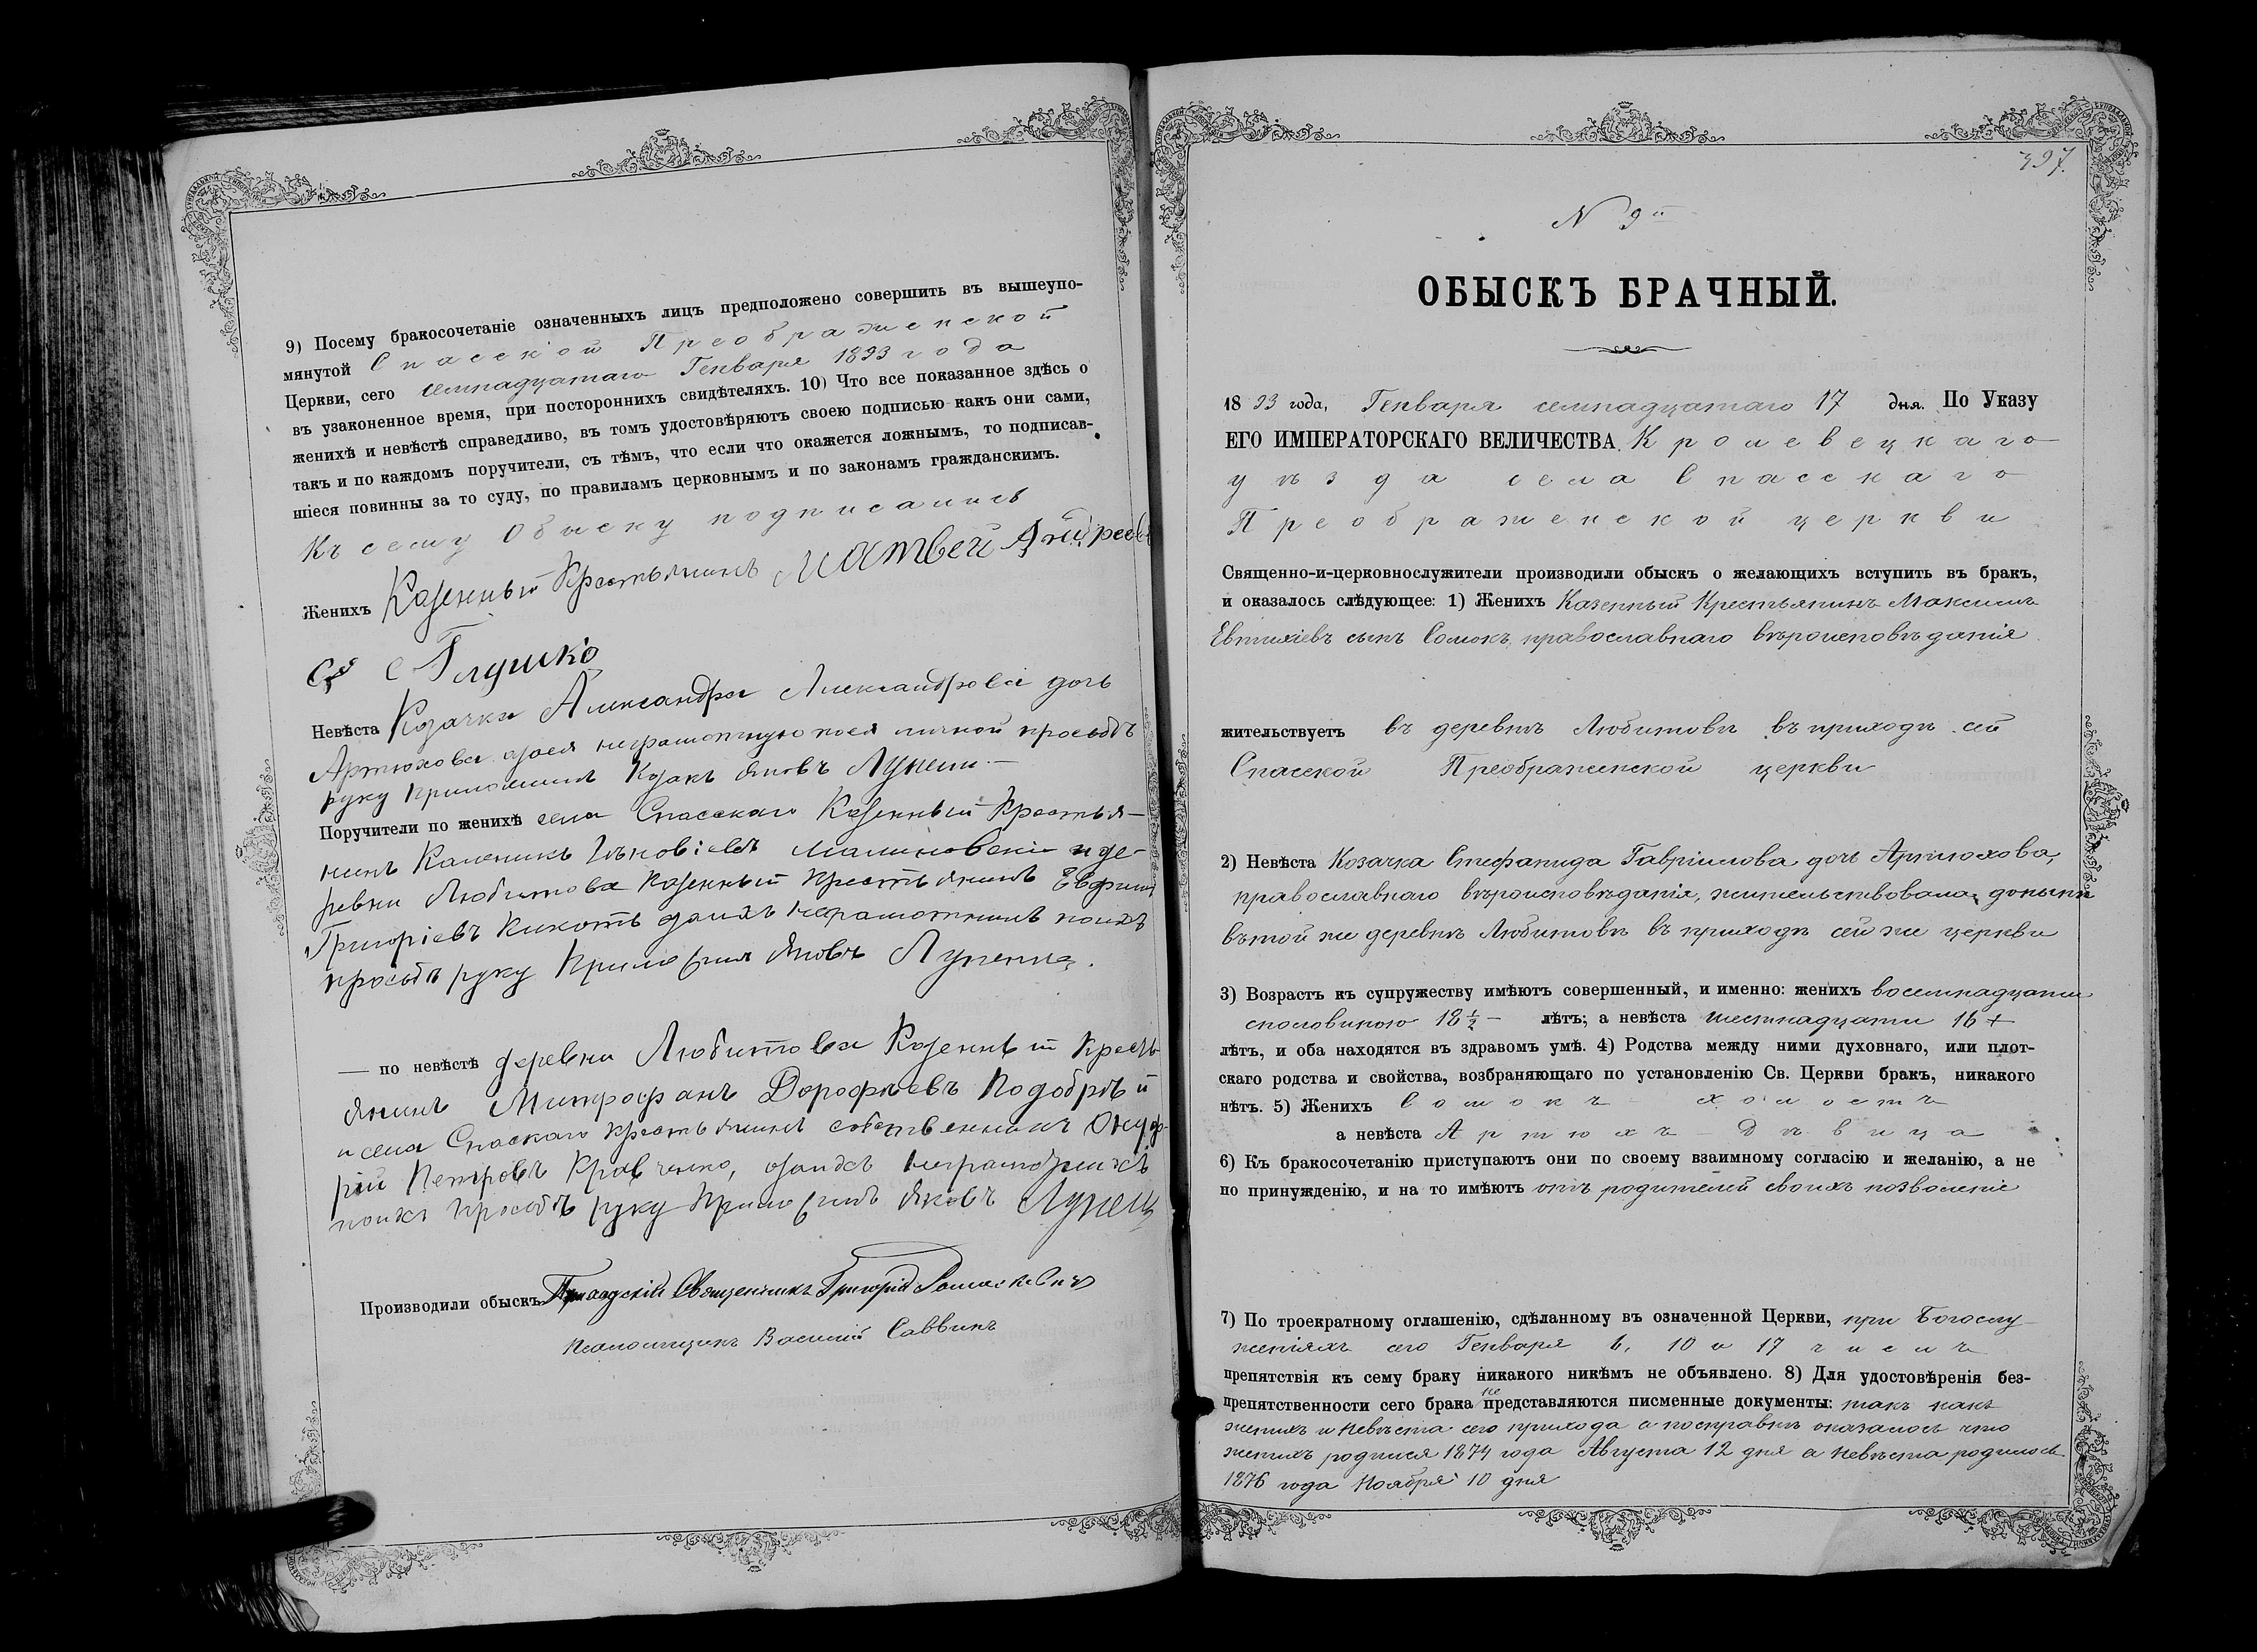 9) Посему бракосочетаніе означенныхъ лицъ предположено совершить въ вышеупо-
мянутой Спасской Преображенской
Церкви, сего семнадцатаго Генваря 1893 года
въ узаконенное время, при постороннихъ свидѣтеляхъ. 10) Что все показанное здѣсь о
женихѣ и невѣстѣ справедливо, въ томъ удостовѣряютъ своею подписью какъ они сами,
такъ и по каждомъ поручители, съ тѣмъ, что если что окажется ложнымъ, то подписав-
шіеся повинны за то суду, по правиламъ церковнымъ и по законамъ гражданскимъ.
Къ сему Обыску подписались
Женихъ Казенный Крестьянинъ Матвей Андреевъ
Глушко
Невѣста Козачка Александра Александрова дочь
Артюхова аза ея неграмотную по ея личной просьбѣ
руку приложилъ Козакъ Яковъ Лупенц
Поручители по женихѣ села Спасскаго Казенный Крестья-
нинъ Каленикъ Малиновскій и де-
ревни Любитова Казенный Крестьянинъ
Григоріевъ Кикоть азаихъ неграмотныхъ поихъ
просьбѣ руку Приложилъ Яковъ
— по невѣстѣ деревни Любитова Казенный Кресть-
янинъ Митрофанъ Дорофѣевъ Подобрѣй
и села Спаскаго крестьянинъ собственникъ Онуф-
рій Петровъ Кравченко, азаихъ неграмотныхъ
поихъ просьбѣ руку Приложилъ Яковъ
Производили обыскъ Приходскій Священникъ Григорій Ромашкевичъ
Псаломщикъ Василій Саввинъ
397.
N 9й
ОБЫСКЪ БРАЧНЫЙ.
1893 года, Генваря семнадцатаго 17 дня. По Указу
ЕГО ИМПЕРАТОРСКАГО ВЕЛИЧЕСТВА, Кролевецкаго
уѣзда села Спасскаго
Преображенской церкви
Священно-и-церковнослужители производили обыскъ о желающихъ вступить въ бракъ,
и оказалось слѣдующее: 1) Женихъ Казенный Крестьянинъ Максимъ
Евтихіевъ сынъ Сомокъ, православнаго вѣроисповѣданія
жительствуетъ въ деревнѣ Любитовѣ въ приходѣ сей
Спасской Преображенской церкви
2) Невѣста Козачка Стефанида Гавріилова дочь Артюхова,
православнаго вѣроисповѣданія, жительствовала донынѣ
въ той же деревнѣ Любитовѣ въ приходѣ сей же церкви
3) Возрастъ къ супружеству имѣютъ совершенный, и именно: женихъ восемнадцати
споловиною 18½ — лѣтъ; а невѣста шестнадцати 16 +
лѣтъ, и оба находятся въ здравомъ умѣ. 4) Родства между ними духовнаго, или плот-
скаго родства и свойства, возбраняющаго по установленію Св. Церкви бракъ, никакого
нѣтъ. 5) Женихъ Сомокъ — холостъ
а невѣста Артюхъ — Дѣвица
6) Къ бракосочетанію приступаютъ они по своему взаимному согласію и желанію, а не
по принужденію, и на то имѣютъ отъ родителей своихъ позволеніе
7) По троекратному оглашенію, сдѣланному въ означенной Церкви, при Богослу-
женіяхъ сего Генваря 6, 10 и 17 чиселъ
препятствія къ сему браку никакого никѣмъ не объявлено. 8) Для удостовѣренія без-
препятственности сего брака не представляются писменные документы: такъ какъ
женихъ и невѣста сего прихода а посправкѣ оказалось что
женихъ родился 1874 года Августа 12 дня а невѣста родилась
1876 года Ноября 10 дня